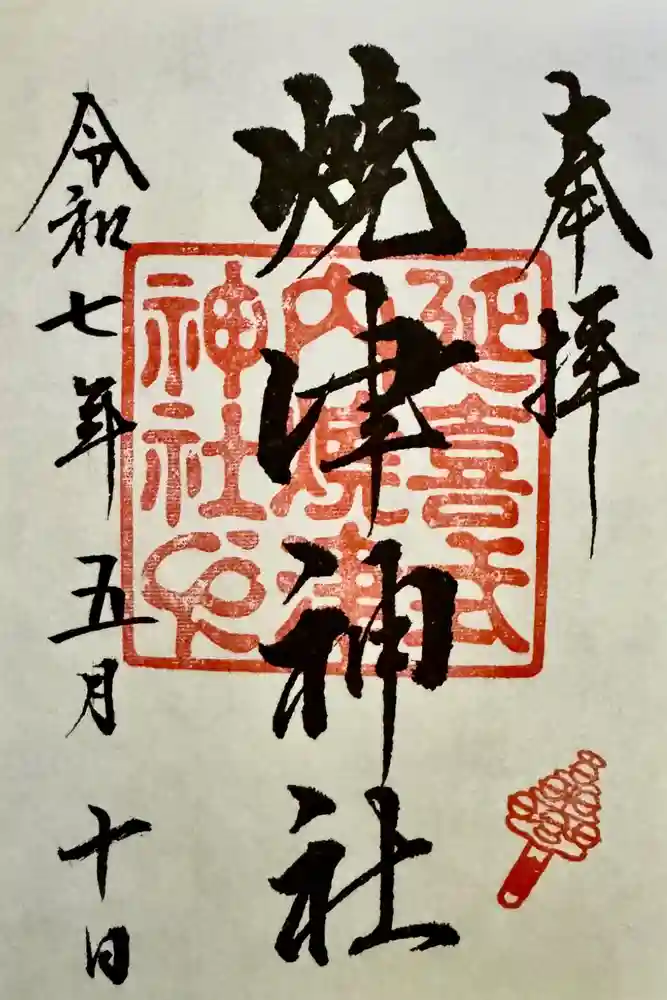 奉拝
焼津神社
延喜式
内焼津
神社印
令和七年五月十日